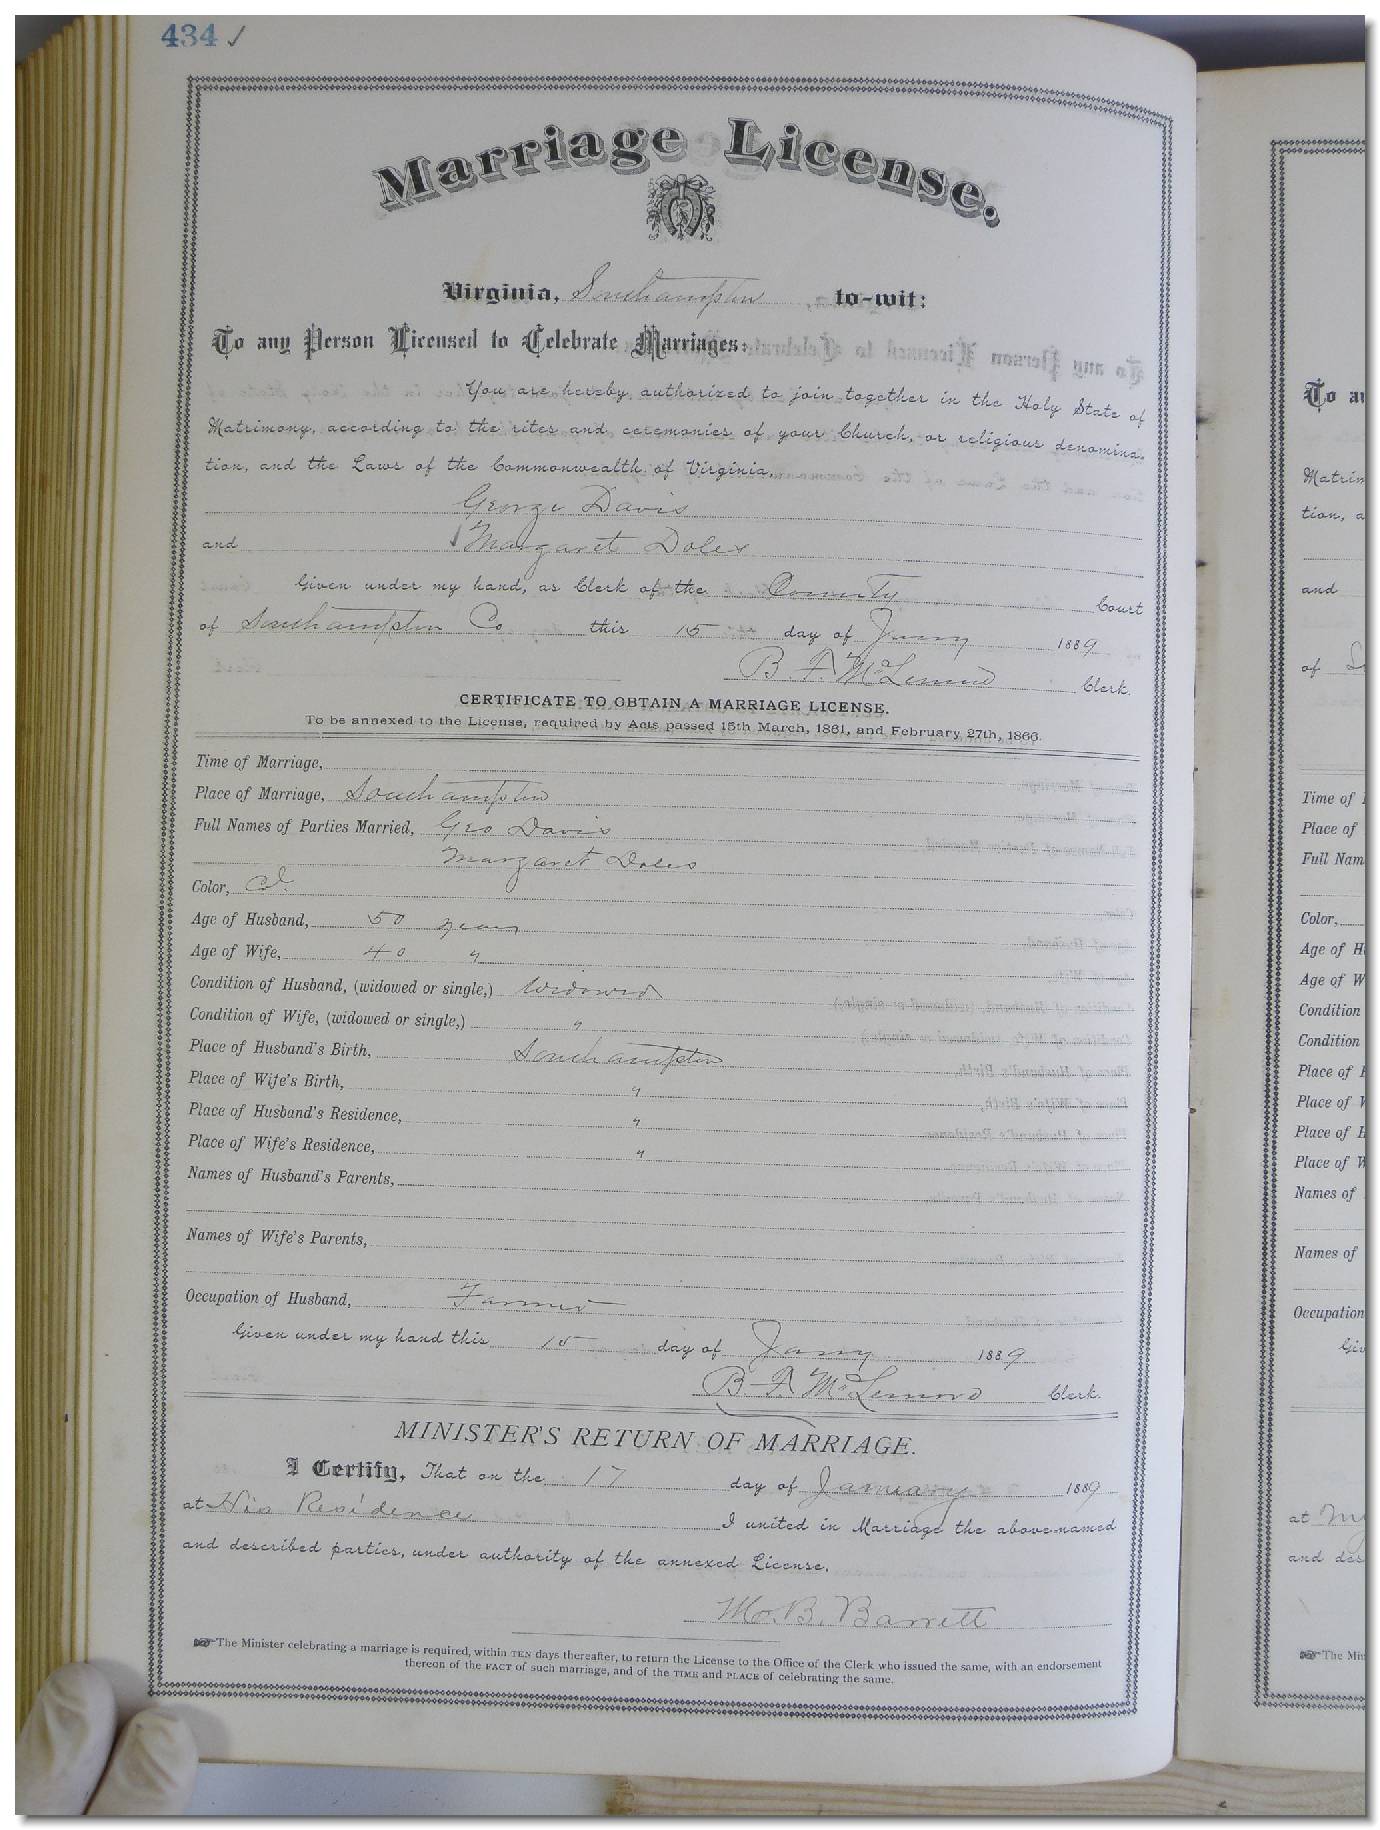 434 ✓
Marriage License.
Virginia, Southampton, to-wit:
To any Person Licensed to Celebrate Marriages:
You are hereby authorized to join together in the Holy State of
Matrimony, according to the rites and ceremonies of your Church, or religious denomina-
tion, and the Laws of the Commonwealth of Virginia,
George Davis
and Margaret Doles
Given under my hand, as Clerk of the County Court
of Southampton Co this 15 day of Jany 1889
B. F. McLemore Clerk.
CERTIFICATE TO OBTAIN A MARRIAGE LICENSE.
To be annexed to the License, required by Acts passed 15th March, 1861, and February 27th, 1866.
Time of Marriage,
Place of Marriage, Southampton
Full Names of Parties Married, Geo Davis
Margaret Doles
Color, Col
Age of Husband, 50 years
Age of Wife, 40 "
Condition of Husband, (widowed or single,) Widowed
Condition of Wife, (widowed or single,) "
Place of Husband's Birth, Southampton
Place of Wife's Birth, "
Place of Husband's Residence, "
Place of Wife's Residence, "
Names of Husband's Parents,
Names of Wife's Parents,
Occupation of Husband, Farmer
Given under my hand this 15 day of Jany 1889
B. F. McLemore Clerk.
MINISTER'S RETURN OF MARRIAGE.
I Certify, That on the 17 day of January 1889
at His Residence I united in Marriage the above-named
and described parties, under authority of the annexed License.
Wm. B. Barrett
The Minister celebrating a marriage is required, within TEN days thereafter, to return the License to the Office of the Clerk who issued the same, with an endorsement
thereon of the FACT of such marriage, and of the TIME and PLACE of celebrating the same.
To a
Matrim
tion, a
and
of
Time of
Place of
Full Nam
Color,
Age of H
Age of W
Condition
Condition
Place of
Place of W
Place of H
Place of W
Names of
Names of
Occupation
Giv
at
and des
The Min